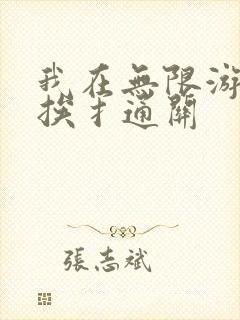 我在無限游
挨才通關
張志斌